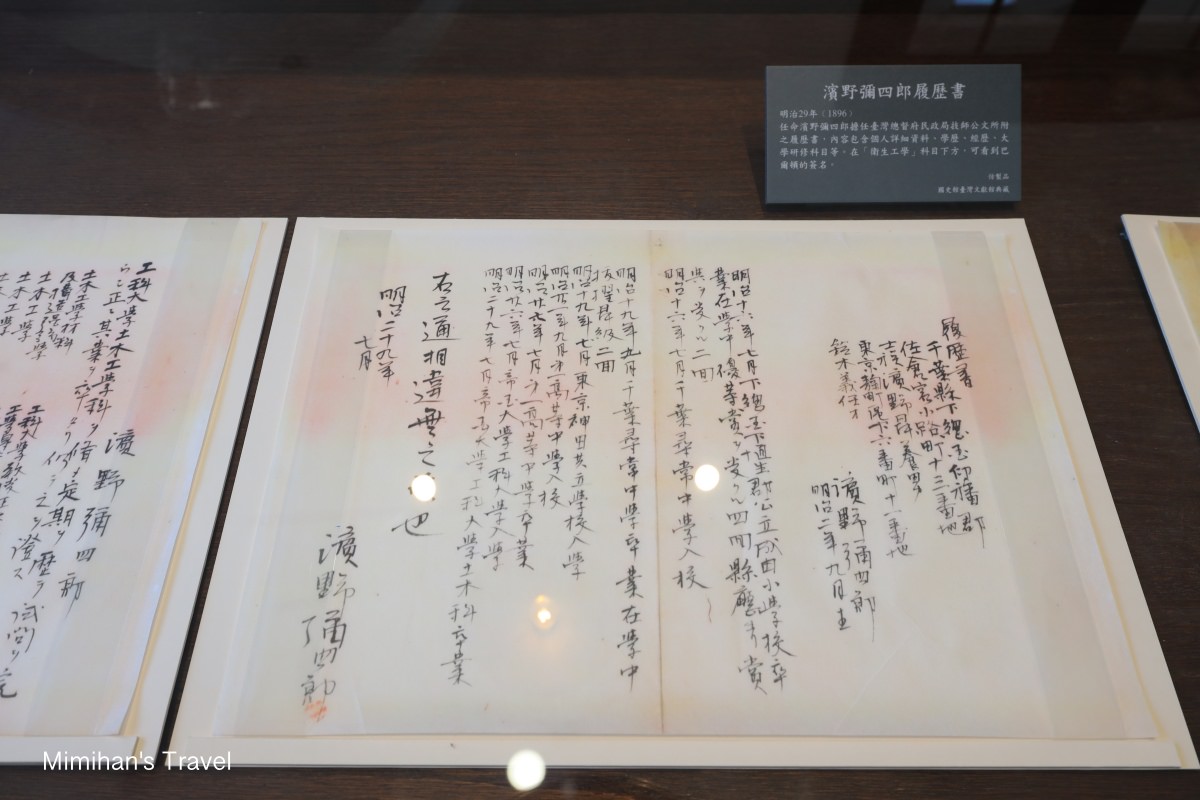 濱野彌四郎履歷書
明治29年（1896）
任命濱野彌四郎擔任臺灣總督府民政局技師公文所附
之履歷書，內容包含個人詳細資料、學歷、經歷、大
學研修科目等，在「衛生工學」科目下方，可看到巴
爾頓的簽名。
仿製品
國史館臺灣文獻館典藏
履歷書
千葉縣下總國印旛郡
佐倉宮小路町十三番地
士族濱野昇養男
東京麹町區下六番町十一番地
鈴木
濱野彌四郎
明治二年九月生
明治十六年七月下總國下埴生郡公立成田小學校卒
業在學中優等賞ヲ受クル四回縣廳ヨリ賞
與ヲ受クル二回
明治十六年七月千葉尋常中學入校
明治十九年九月千葉尋常中學卒業在學中
拔擢昇級二回
明治十九年七月東京神田共立學校入學
明治廿年九月第一高等中學入校
明治廿六年七月第一高等中學卒業
明治廿六年七月帝國大學工科大學入學
明治二十九年七月帝國大學工科大學土木科卒業
右之通相違無之也
明治二十九年
七月
濱野彌四郎
濱野彌四郎
工科大學土木工學科ヲ修メ定期ヲ歷テ試問ヲ完
ラシ正ニ其業ヲ卒ヘタリ仍テ之ヲ證ス
土木工學
土木工學
Mimihan's Travel